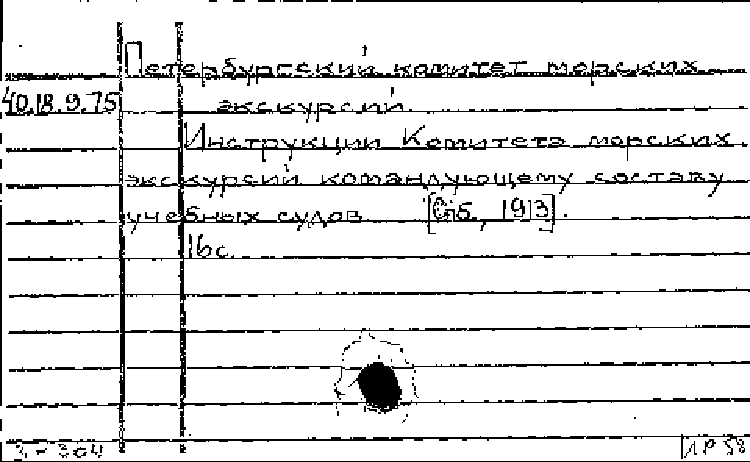 Петербургский комитет морских
40.18.9.75 экскурсий.
Инструкции Комитета морских
экскурсий командующему составу
учебных судов [Спб, 1913].
16с.
3-304